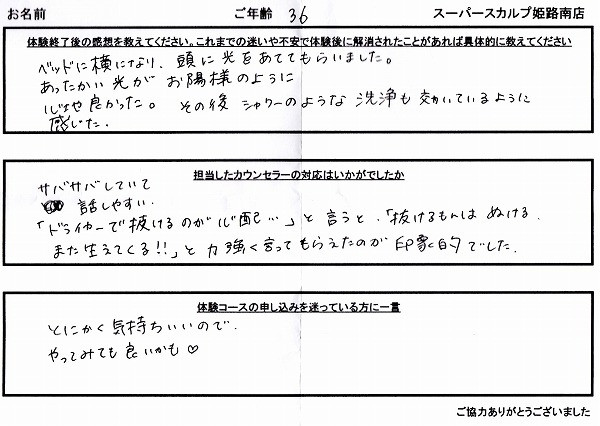 お名前 ご年齢 36 スーパースカルプ姫路南店
体験終了後の感想を教えてください。これまでの迷いや不安で体験後に解消されたことがあれば具体的に教えてください
ベッドに横になり、頭に光をあててもらいました。
あったかい光が お陽様のように
心地や良かった。 その後 シャワーのような 洗浄も 効いているように
感じた。
担当したカウンセラーの対応はいかがでしたか
サバサバしていて
話しやすい。
「ドライヤーで抜けるのが心配…」と言うと、「抜けるもんは ぬける、
また生えてくる!!」と力強く言ってもらえたのが 印象的でした。
体験コースの申し込みを迷っている方に一言
とにかく気持ちいいので、
やってみても良いかも♡
ご協力ありがとうございました